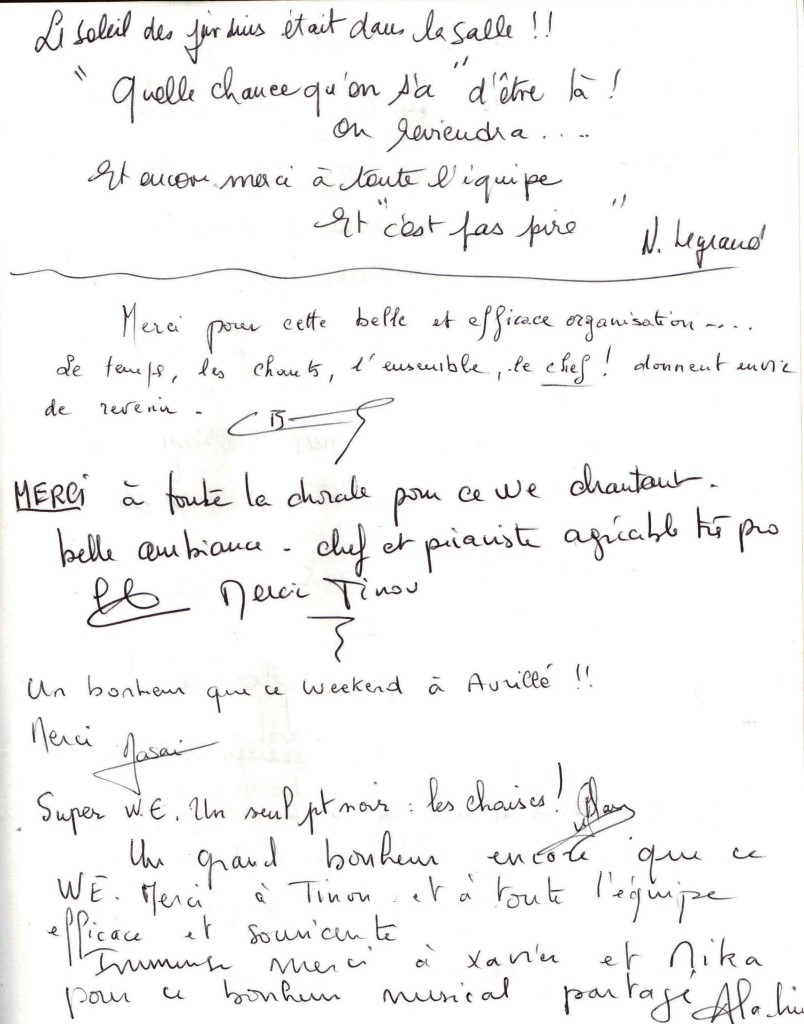 Le soleil des jardins était dans la salle !!
" Quelle chance qu'on s'a " d'être là !
on reviendra ....
Et encore merci à toute l'équipe
Et "c'est pas pire "
N. Legrand
Merci pour cette belle et efficace organisation ....
Le temps, les chants, l'ensemble, le chef ! donnent envie
de revenir .
MERCi à toute la chorale pour ce we chantant .
belle ambiance - chef et pianiste agréable très pro
Merci Tinou
Un bonheur que ce weekend à Avrillé !!
Merci
Super W.E. Un seul pt noir : les chaises !
Un grand bonheur encore que ce
WE. Merci à Tinou et à toute l'équipe
efficace et souriante
Immense merci à Xavier et Nika
pour ce bonheur musical partagé